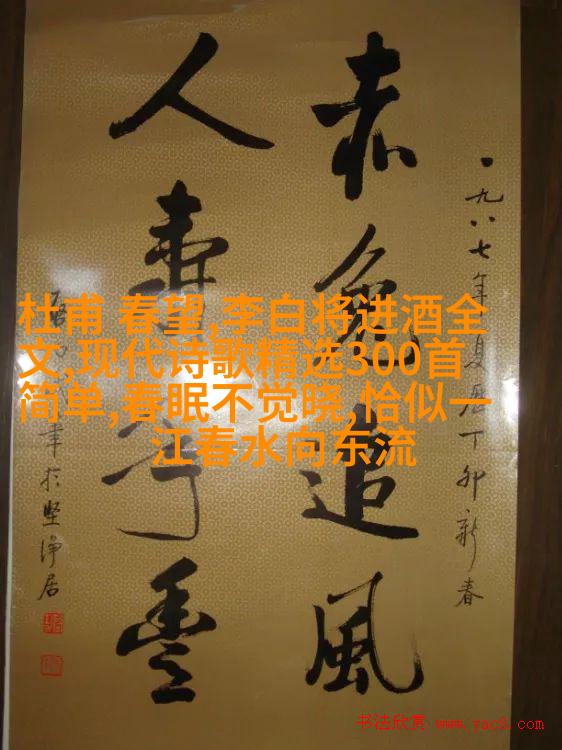 赤兔追風
人壽年豐
一九八七年夏历丁卯新春
於坚净居
杜甫 春望,李白将进酒全
文,现代诗歌精选300首
简单,春眠不觉晓,恰似一
江春水向东流
书法欣赏 www.yac8.com